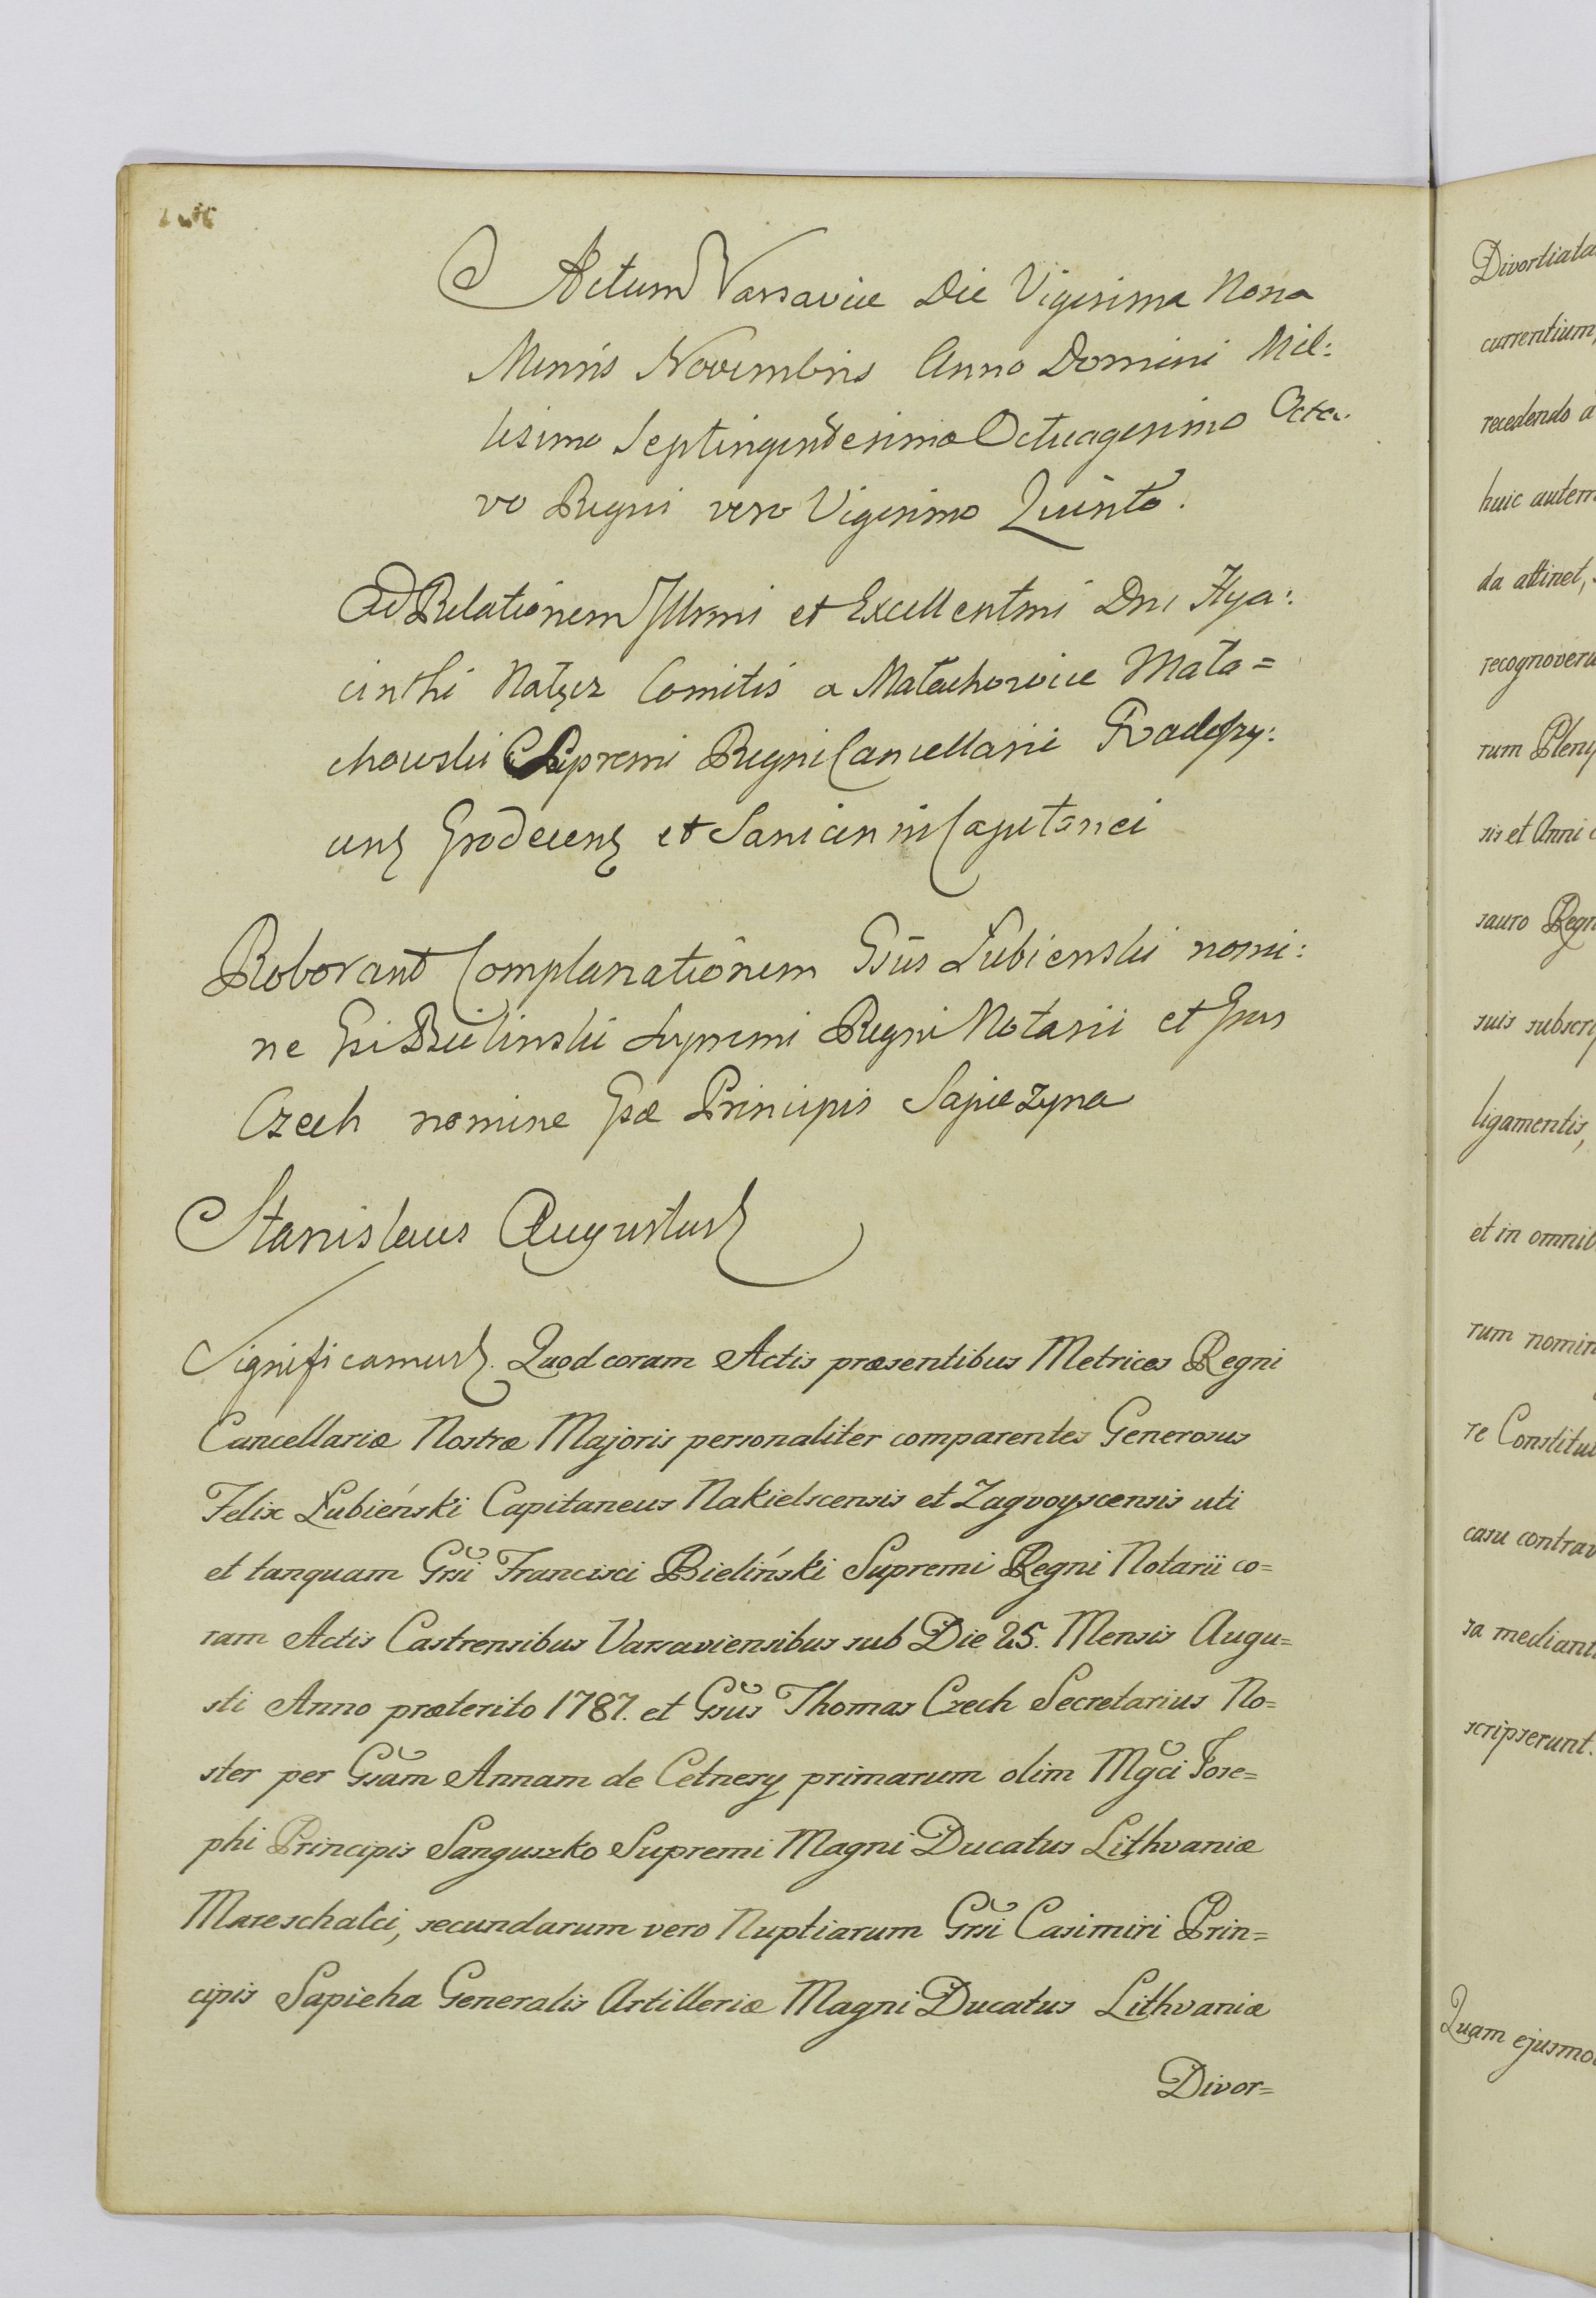 Actum Varsaviæ Die Vigesima Nona
Mensis Novembris Anno Domini Mil:
lesimo Septingentesimo Octuagesimo Octa:
vo Regni vero Vigesimo Quinto.
Ad Relationem Illrmi et Excellentmi Dni Hya:
cinthi Nałęcz Comitis a Małachowice Mała=
chowski Supremi Regni Cancellarii Radoszy:
cens Grodecens et Sanicensis Capitanei
Roborant Complanationem Gsus Łubienski nomi:
ne Gsi Bielinski Supremi Regni Notarii et Gsus
Czech nomine Gsæ Principis Sapiezyna
Stanislaus Augustus
Significamus. Quod coram Actis præsentibus Metrices Regni
Cancellariæ Nostræ Majoris personaliter comparentes Generosus
Felix Łubieński Capitaneus Nakielscensis et Zagvoyscensis uti
et tanquam Grsi Francisci Bieliński Supremi Regni Notarii co=
ram Actis Castrensibus Varsaviensibus sub Die 25. Mensis Augu=
sti Anno præterito 1787. et Gsus Thomas Czech Secretarius No=
ster per Gsam Annam de Cetnery primarum olim Mgci Jose=
phi Principis Sanguszko Supremi Magni Ducatus Lithvaniæ
Mareschalci, secundarum vero Nuptiarum Grsi Casimiri Prin=
cipis Sapieha Generalis Artilleriæ Magni Ducatus Lithvaniæ
Divor=
Divortiata
currentium,
recedendo a
huic autem
da attinet,
recognoveru
rum Pleny
sis et Anni
sauro Regn
suis subscrip
ligamentis,
et in omnib
rum nomin
re Constitu
casu contrav
sa mediant
scripserunt.
Quam ejusmo